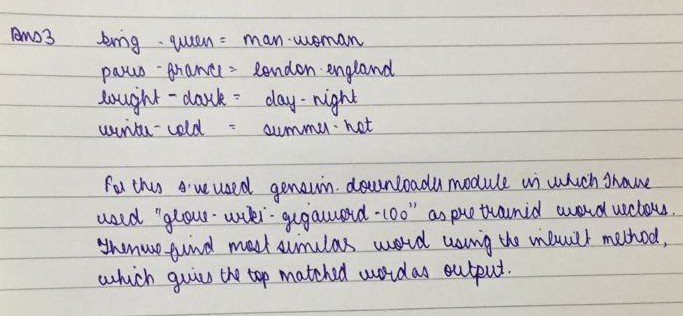 Ans3 king - queen = man - woman
paris - france = london - england
bright - dark = day - night
winter - cold = summer - hot
For this I've used gensim. downloader module in which I have
used "glove - wiki - gigaword - 100" as pre trained word vectors.
Then we find most similar word using the inbuilt method,
which gives the top matched word as output.